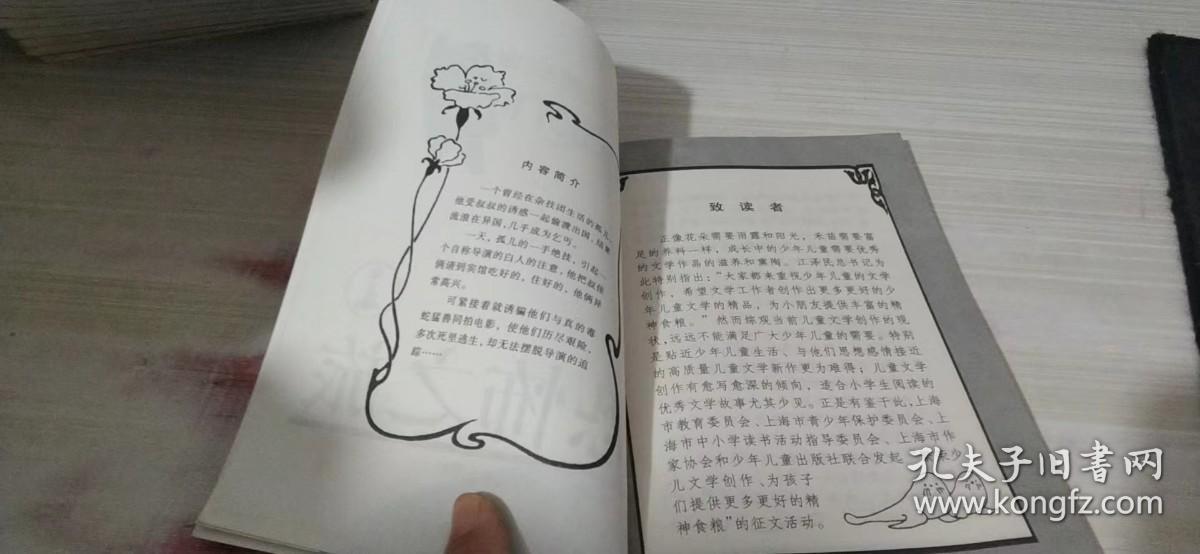 内容简介
一个曾经在杂技团生活的孤儿,
他受叔叔的诱惑一起偷渡出国,结果
流浪在异国,几乎成为乞丐。
一天,孤儿的一手绝技,引起一
个自称导演的白人的注意,他把叔侄
俩请到宾馆吃好的,住好的,他俩异
常高兴。
可紧接着就诱骗他们与真的毒
蛇猛兽同拍电影,使他们历尽艰险,
多次死里逃生,却无法摆脱导演的追
踪……
致读者
正像花朵需要雨露和阳光,禾苗需要富
足的养料一样,成长中的少年儿童需要优秀
的文学作品的滋养和熏陶。江泽民总书记为
此特别指出:“大家都来重视少年儿童的文学
创作,希望文学工作者创作出更多更好的少
年儿童文学的精品,为小朋友提供丰富的精
神食粮。”然而综观当前儿童文学创作的现
状,远远不能满足广大少年儿童的需要。特别
是贴近少年儿童生活、与他们思想感情接近
的高质量儿童文学新作更为难得;儿童文学
创作有愈写愈深的倾向,适合小学生阅读的
优秀文学故事尤其少见。正是有鉴于此,上海
市教育委员会、上海市青少年保护委员会、上
海市中小学读书活动指导委员会、上海市作
家协会和少年儿童出版社联合发起
少
儿文学创作、为孩子
们提供更多更好的精
神食粮”的征文活动。
孔夫子旧书网
www.kongfz.com